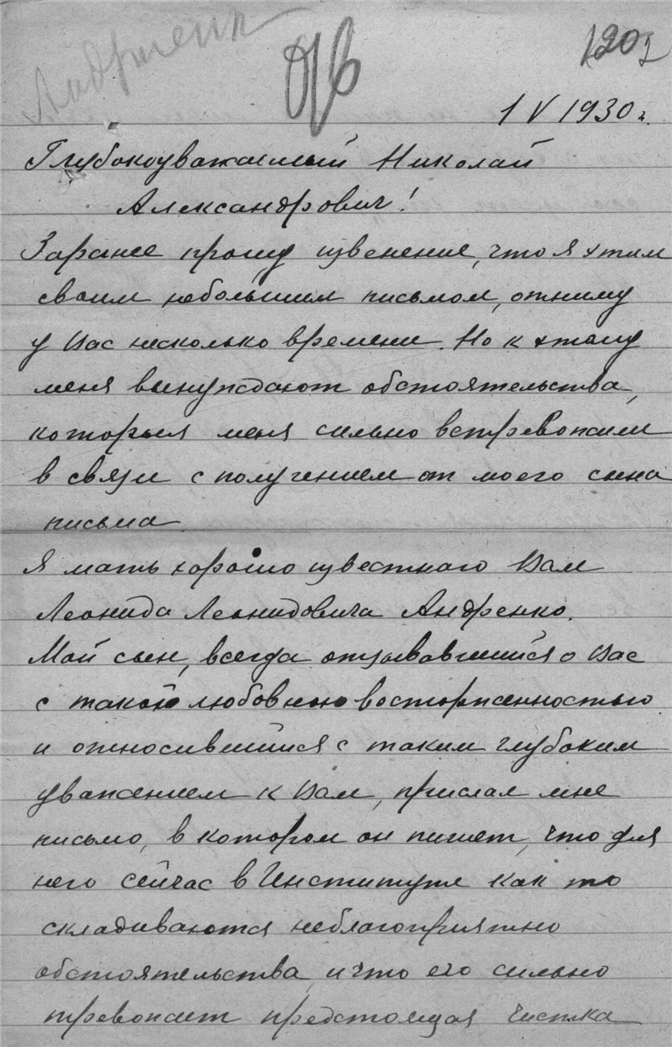 Андренк
120
1 V 1930 г.
Глубокоуважаемый Николай
Александрович!
Заранее прошу извенение, что я этим
своим небольшим письмом, отниму
у Вас несколько времени. Но к этому
меня вынуждают обстоятельства,
которыя меня сильно встревожили
в связи с получением от моего сына
письма.
Я мать хорошо известного Вам
Леонида Леонидовича Андренко.
Мой сын, всегда отзывавшийся о Вас
с такою любовною восторженностью
и относившийся с таким глубоким
уважением к Вам, прислал мне
письмо, в котором он пишет, что для
него сейчас в Институте как то
складываются неблагоприятно
обстоятельства и что его сильно
тревожит предстоящая чистка